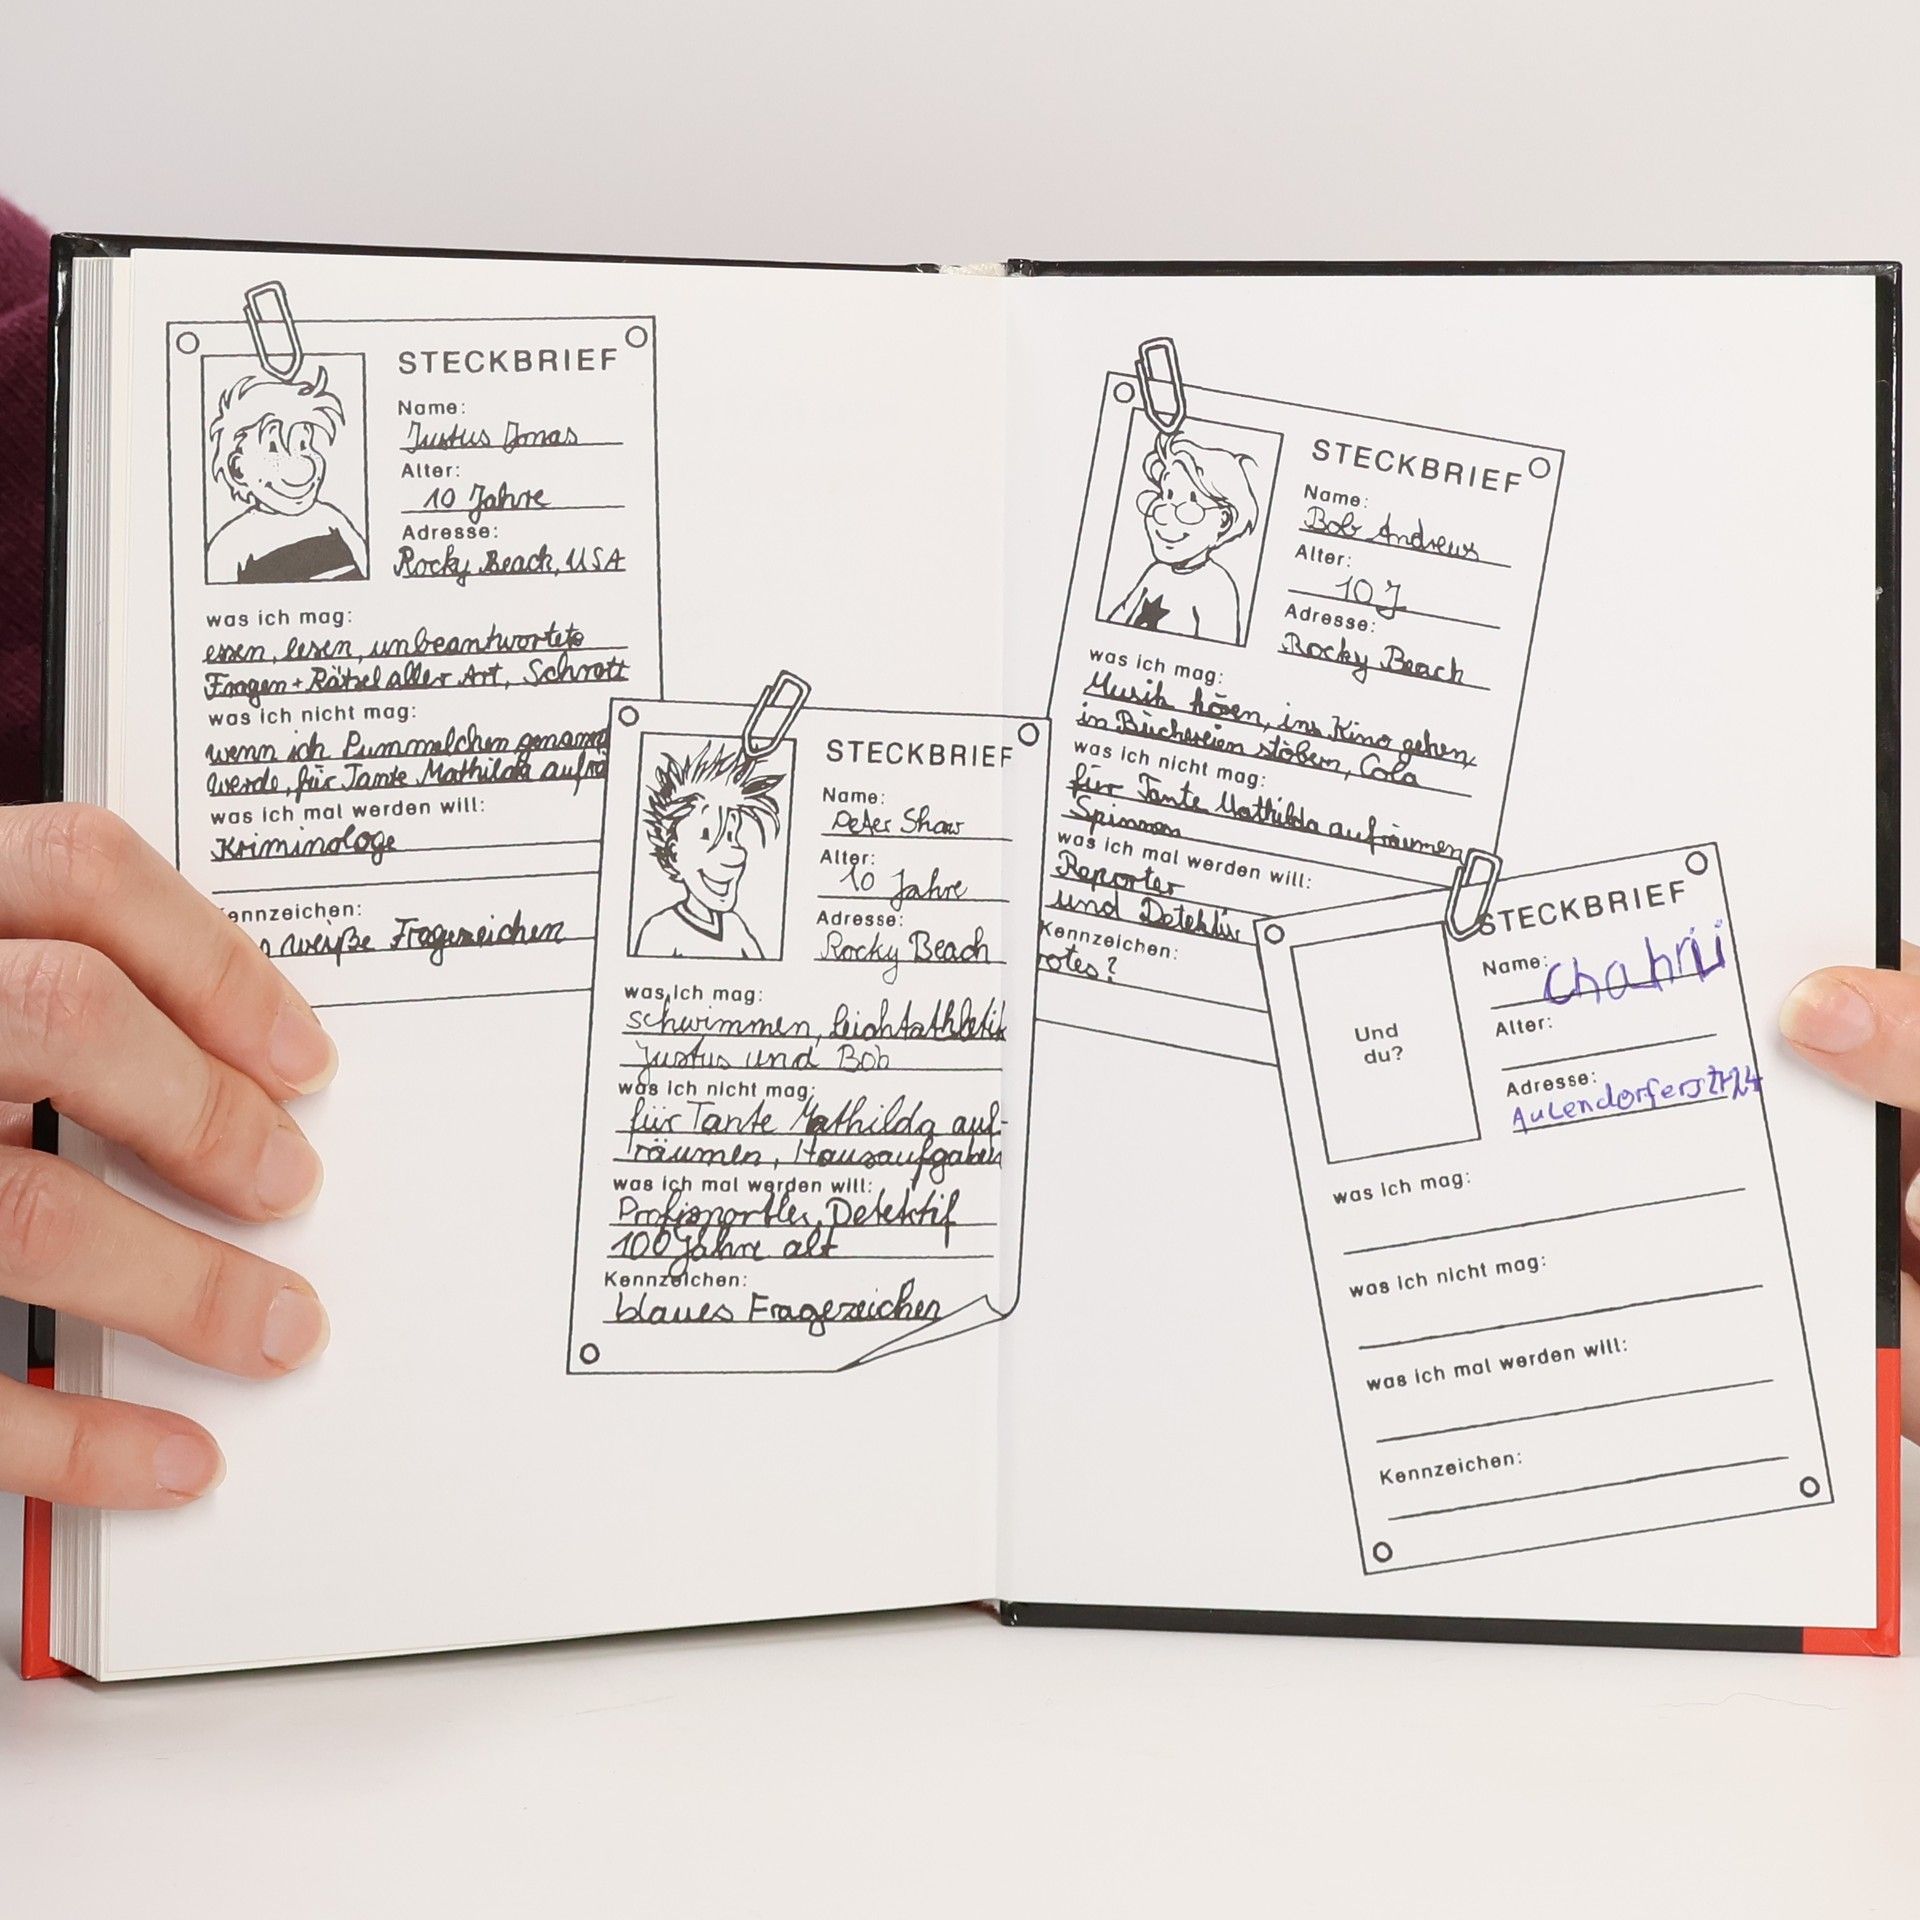 STECKBRIEF
Name:
Justus Jonas
Alter:
10 Jahre
Adresse:
Rocky Beach, USA
was ich mag:
essen, lesen, unbeantwortete
Fragen + Rätsel aller Art, Schrott
was ich nicht mag:
wenn ich Pummelchen genannt
werde, für Tante Mathilda aufrä
was ich mal werden will:
Kriminologe
ennzeichen:
weiße Fragezeichen
STECKBRIEF
Name:
Peter Shaw
Alter:
10 Jahre
Adresse:
Rocky Beach
was ich mag:
schwimmen, Leichtathletik
Justus und Bob
was ich nicht mag:
für Tante Mathilda auf-
räumen, Hausaufgaben
was ich mal werden will:
Profisportler, Detektif
100 Jahre alt
Kennzeichen:
blaues Fragezeichen
STECKBRIEF
Name:
Bob Andrews
Alter:
10 J
Adresse:
Rocky Beach
was ich mag:
Musik hören, ins Kino gehen,
in Büchereien stöbern, Cola
was ich nicht mag:
für Tante Mathilda aufräumen
Spinnen
was ich mal werden will:
Reporter
und Detektiv
Kennzeichen:
rotes?
STECKBRIEF
Und
du?
Name:
Alter:
Adresse:
Aulendorferstr24
was ich mag:
was ich nicht mag:
was ich mal werden will:
Kennzeichen: